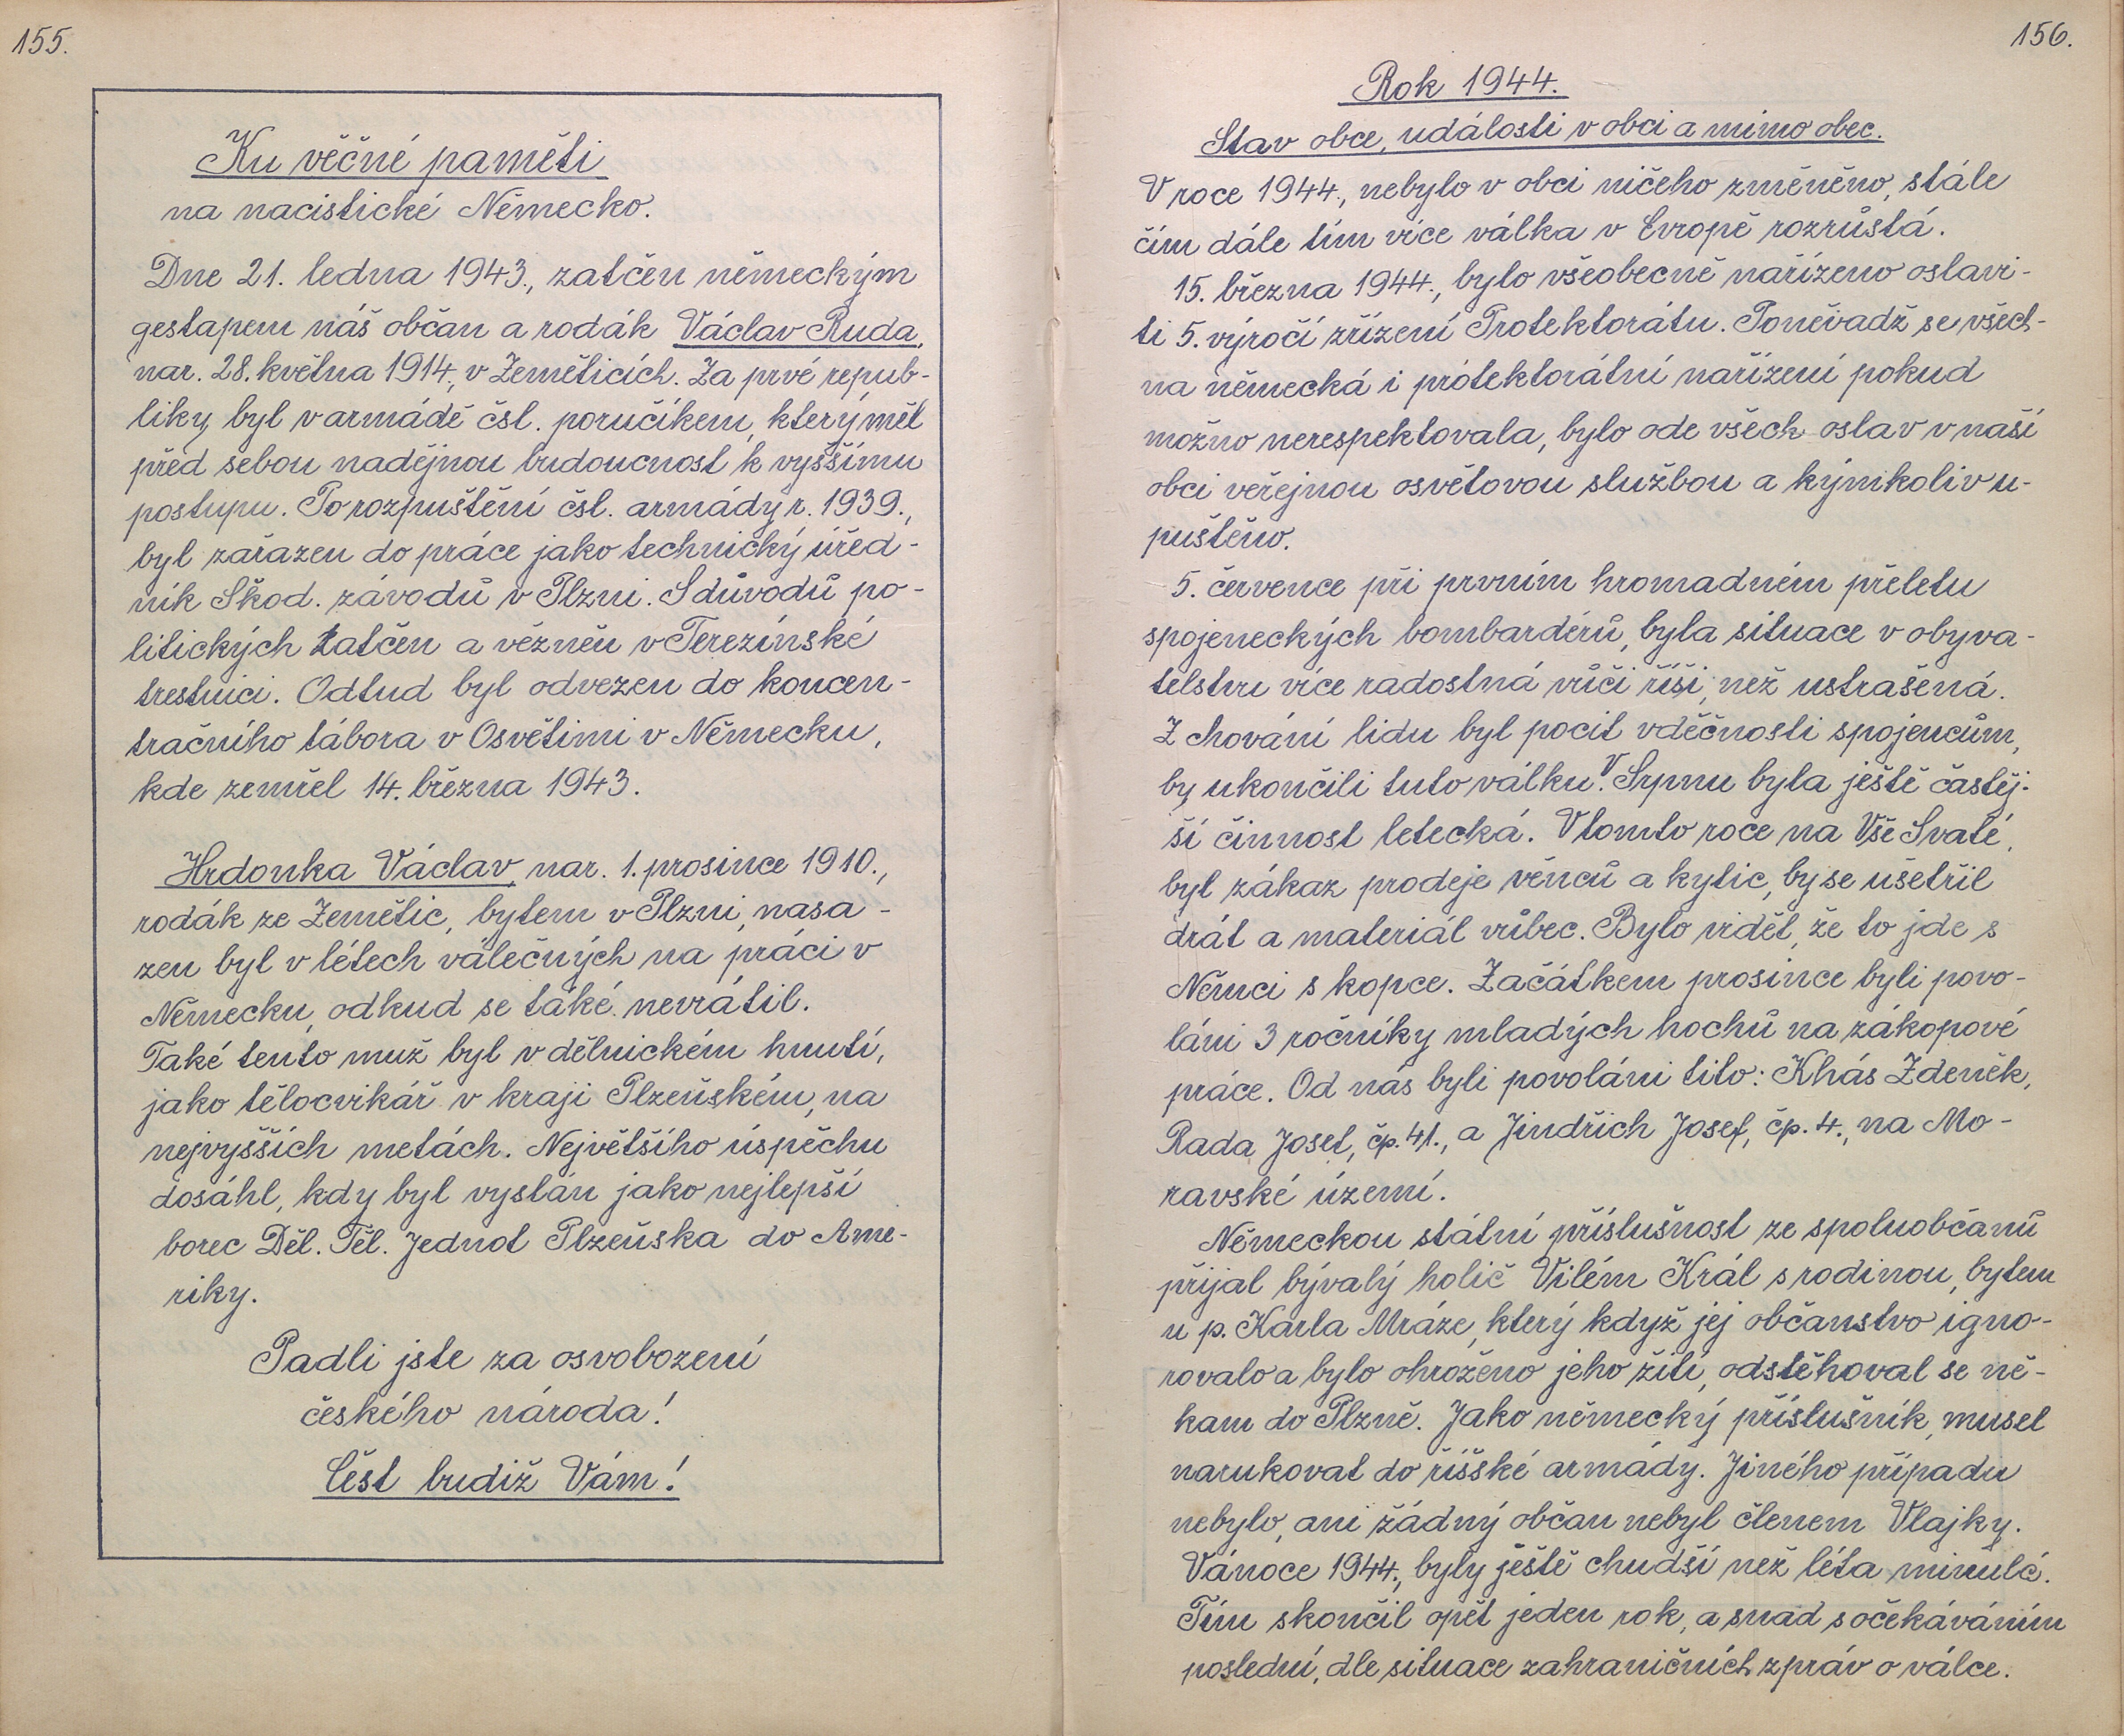 155.
Ku věčné paměti
na nacistické Německo.
Dne 21. ledna 1943., zatčen německým
gestapem náš občan a rodák Václav Ruda,
nar. 28. května 1914, v Zeměticích. Za prvé repub-
liky byl v armádě čsl. poručíkem, který měl
před sebou nadějnou budoucnost k vyššímu
postupu. Po rozpuštění čsl. armády r. 1939.,
byl zařazen do práce jako technický úřed-
ník Škod. závodů v Plzni. S důvodů po-
litických zatčen a vězněn v Terezínské
trestnici. Odtud byl odvezen do koncen-
tračního tábora v Osvětimi v Německu,
kde zemřel 14. března 1943.
Hrdonka Václav, nar. 1. prosince 1910.,
rodák ze Zemětic, bytem v Plzni, nasa-
zen byl v létech válečných na práci v
Německu, odkud se také nevrátil.
Také tento muž byl v dělnickém hnutí,
jako tělocvikář v kraji Plzeňském, na
nejvyšších metách. Největšího úspěchu
dosáhl, kdy byl vyslán jako nejlepší
borec Děl. Těl. Jednot Plzeňska do Ame-
riky.
Padli jste za osvobození
českého národa!
Čest budiž Vám!
156.
Rok 1944.
Stav obce, události v obci a mimo obec.
V roce 1944., nebylo v obci ničeho změněno, stále
čím dále tím více válka v Evropě rozrůstá.
15. března 1944., bylo všeobecně nařízeno oslavi-
ti 5. výročí zřízení Protektorátu. Poněvadž se všech-
na německá i protektorátní nařízení pokud
možno nerespektovala, bylo ode všech oslav v naší
obci veřejnou osvětovou službou a kýmkoliv u-
puštěno.
5. července při prvním hromadném přeletu
spojeneckých bombardérů, byla situace v obyva-
telstvu více radostná vůči říši, než ustrašená.
Z chování lidu byl pocit vděčnosti spojencům,
by ukončili tuto válku. V Srpnu byla ještě častěj-
ší činnost letecká. V tomto roce na Vše Svaté,
byl zákaz prodeje věnců a kytic, by se ušetřil
drát a materiál vůbec. Bylo vidět, že to jde s
Němci s kopce. Začátkem prosince byli povo-
láni 3 ročníky mladých hochů na zákopové
práce. Od nás byli povoláni tito: Khás Zdeněk,
Rada Josef, čp. 41., a Jindřich Josef, čp. 4., na Mo-
ravské území.
Německou státní příslušnost ze spoluobčanů
přijal bývalý holič Vilém Král s rodinou, bytem
u p. Karla Mráze, který když jej občanstvo igno-
rovalo a bylo ohroženo jeho žití, odstěhoval se ně-
kam do Plzně. Jako německý příslušník, musel
narukovat do říšské armády. Jiného případu
nebylo, ani žádný občan nebyl členem Vlajky.
Vánoce 1944., byly ještě chudší než léta minulé.
Tím skončil opět jeden rok, a snad s očekáváním
poslední, dle situace zahraničních zpráv o válce.